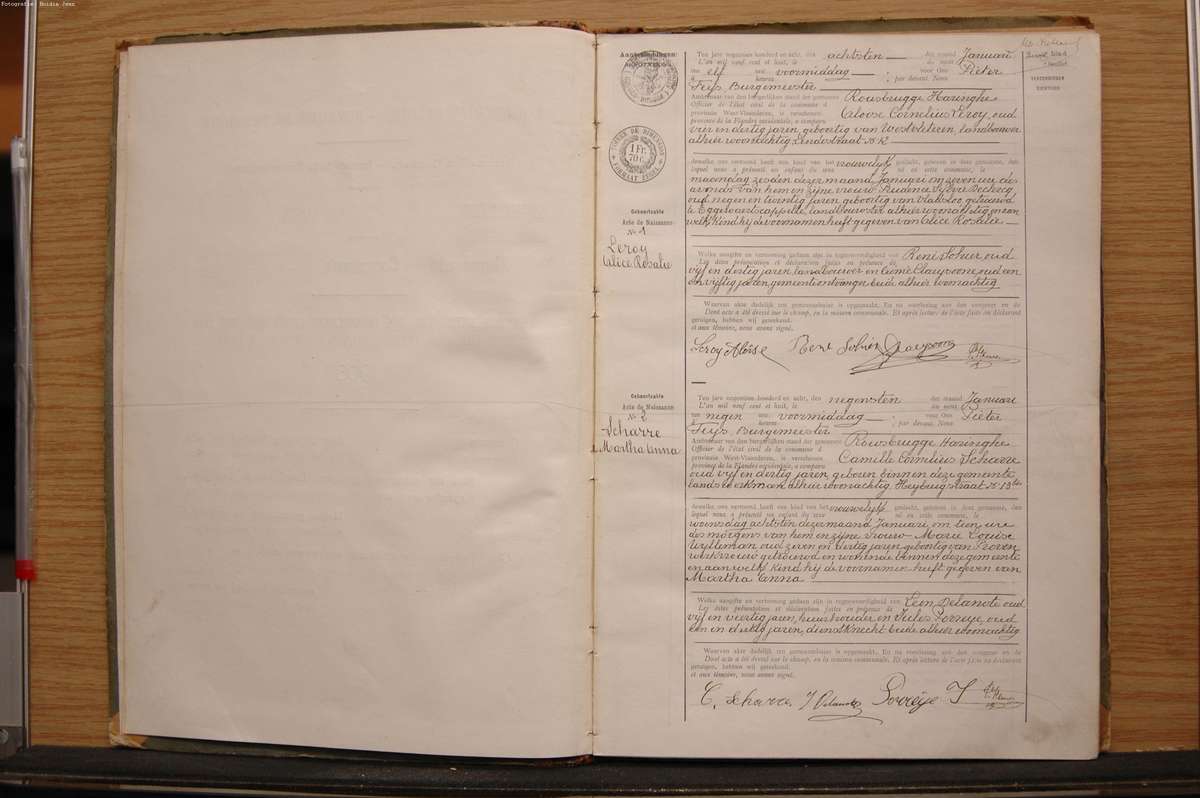 Fotografie: Buidin Jean
Aanteekeningen
1 Fr.
70 c.
Geboorteakte
Acte de Naissance
Nº 1
Leroy
Alice Rosalie
Ten jare negentien honderd en acht, den achtsten den maand Januari
L'an mil neuf cent et huit, le du mois
ten elf ure voormiddag voor Ons Pieter
à heures par devant Nous
Feys Burgemeester
Ambtenaar van den burgerlijken stand der gemeente Rousbrugge Haringhe
Officier de l'état civil de la commune d
provincie West-Vlaanderen, is verschenen Aloïse Cornelius Leroy, oud
province de la Flandre occidentale, a comparu
vier en dertig jaren, geboortig van Westvleteren, landbouwer
alhier woonachtig, Lindestraat
dewelke ons vertoond heeft een kind van het vrouwelijk geslacht, geboren in deze gemeente, den
lequel nous a présenté un enfant du sexe né en cette commune, le
maandag zesden dezer maand Januari om zeven ure des
avonds van hem en zijne vrouw Prudence Sylvie Declercq
oud negen en twintig jaren, geboortig van Vladsloo getrouwd
te Eggewaertscappelle, landbouwster alhier woonachtig en aan
welk kind hij de voornamen heeft gegeven van Alice Rosalie
Welke aangifte en vertooning gedaan zijn in tegenwoordigheid van René Soher oud
Les dites présentation et déclaration faites en présence de
vijf en dertig jaren, landbouwer en Cumé Claeysoone, oud een
en vijftig jaren, gemeenteontvanger beide alhier woonachtig
Waarvan akte dadelijk ten gemeentehuize is opgemaakt. En na voorlezing aan den vergeer en de
Dont acte a été dressé sur le champ, en la maison communale. Et après lecture de l'acte faite au déclarant
getuigen, hebben wij geteekend.
et aux témoins, nous avons signé.
Leroy Aloïse René Soher Claeysoone
Geboorteakte
Acte de Naissance
Nº 2
Scharre
Martha Anna
Ten jare negentien honderd en acht, den negensten den maand Januari
L'an mil neuf cent et huit, le du mois
ten negen ure voormiddag voor Ons Pieter
à heures par devant Nous
Feys, Burgemeester
Ambtenaar van den burgerlijken stand der gemeente Rousbrugge Haringhe
Officier de l'état civil de la commune d
provincie West-Vlaanderen, is verschenen Camille Cornelius Scharre
province de la Flandre occidentale, a comparu
oud vijf en dertig jaren, geboren binnen deze gemeente
landswerkman alhier woonachtig, Heybrugstraat
dewelke ons vertoond heeft een kind van het vrouwelijk geslacht, geboren in deze gemeente, den
lequel nous a présenté un enfant du sexe né en cette commune, le
woensdag achtsten dezer maand Januari om tien ure
des morgens van hem en zijne vrouw Marie Louise
Wylleman oud zeven en dertig jaren, geboortig van Proven
werkvrouw getrouwd en wonende binnen deze gemeente
en aan welk kind hij de voornamen heeft gegeven van
Martha Anna
Welke aangifte en vertooning gedaan zijn in tegenwoordigheid van Leon Delanote oud
Les dites présentation et déclaration faites en présence de
vijf en veertig jaren, huishouder en Jules Porreye, oud
een en dertig jaren, dienstknecht beide alhier woonachtig
Waarvan akte dadelijk ten gemeentehuize is opgemaakt. En na voorlezing aan den vergeer en de
Dont acte a été dressé sur le champ, en la maison communale. Et après lecture de l'acte faite au déclarant
getuigen, hebben wij geteekend.
et aux témoins, nous avons signé.
C. Scharre Delanote Porreye J